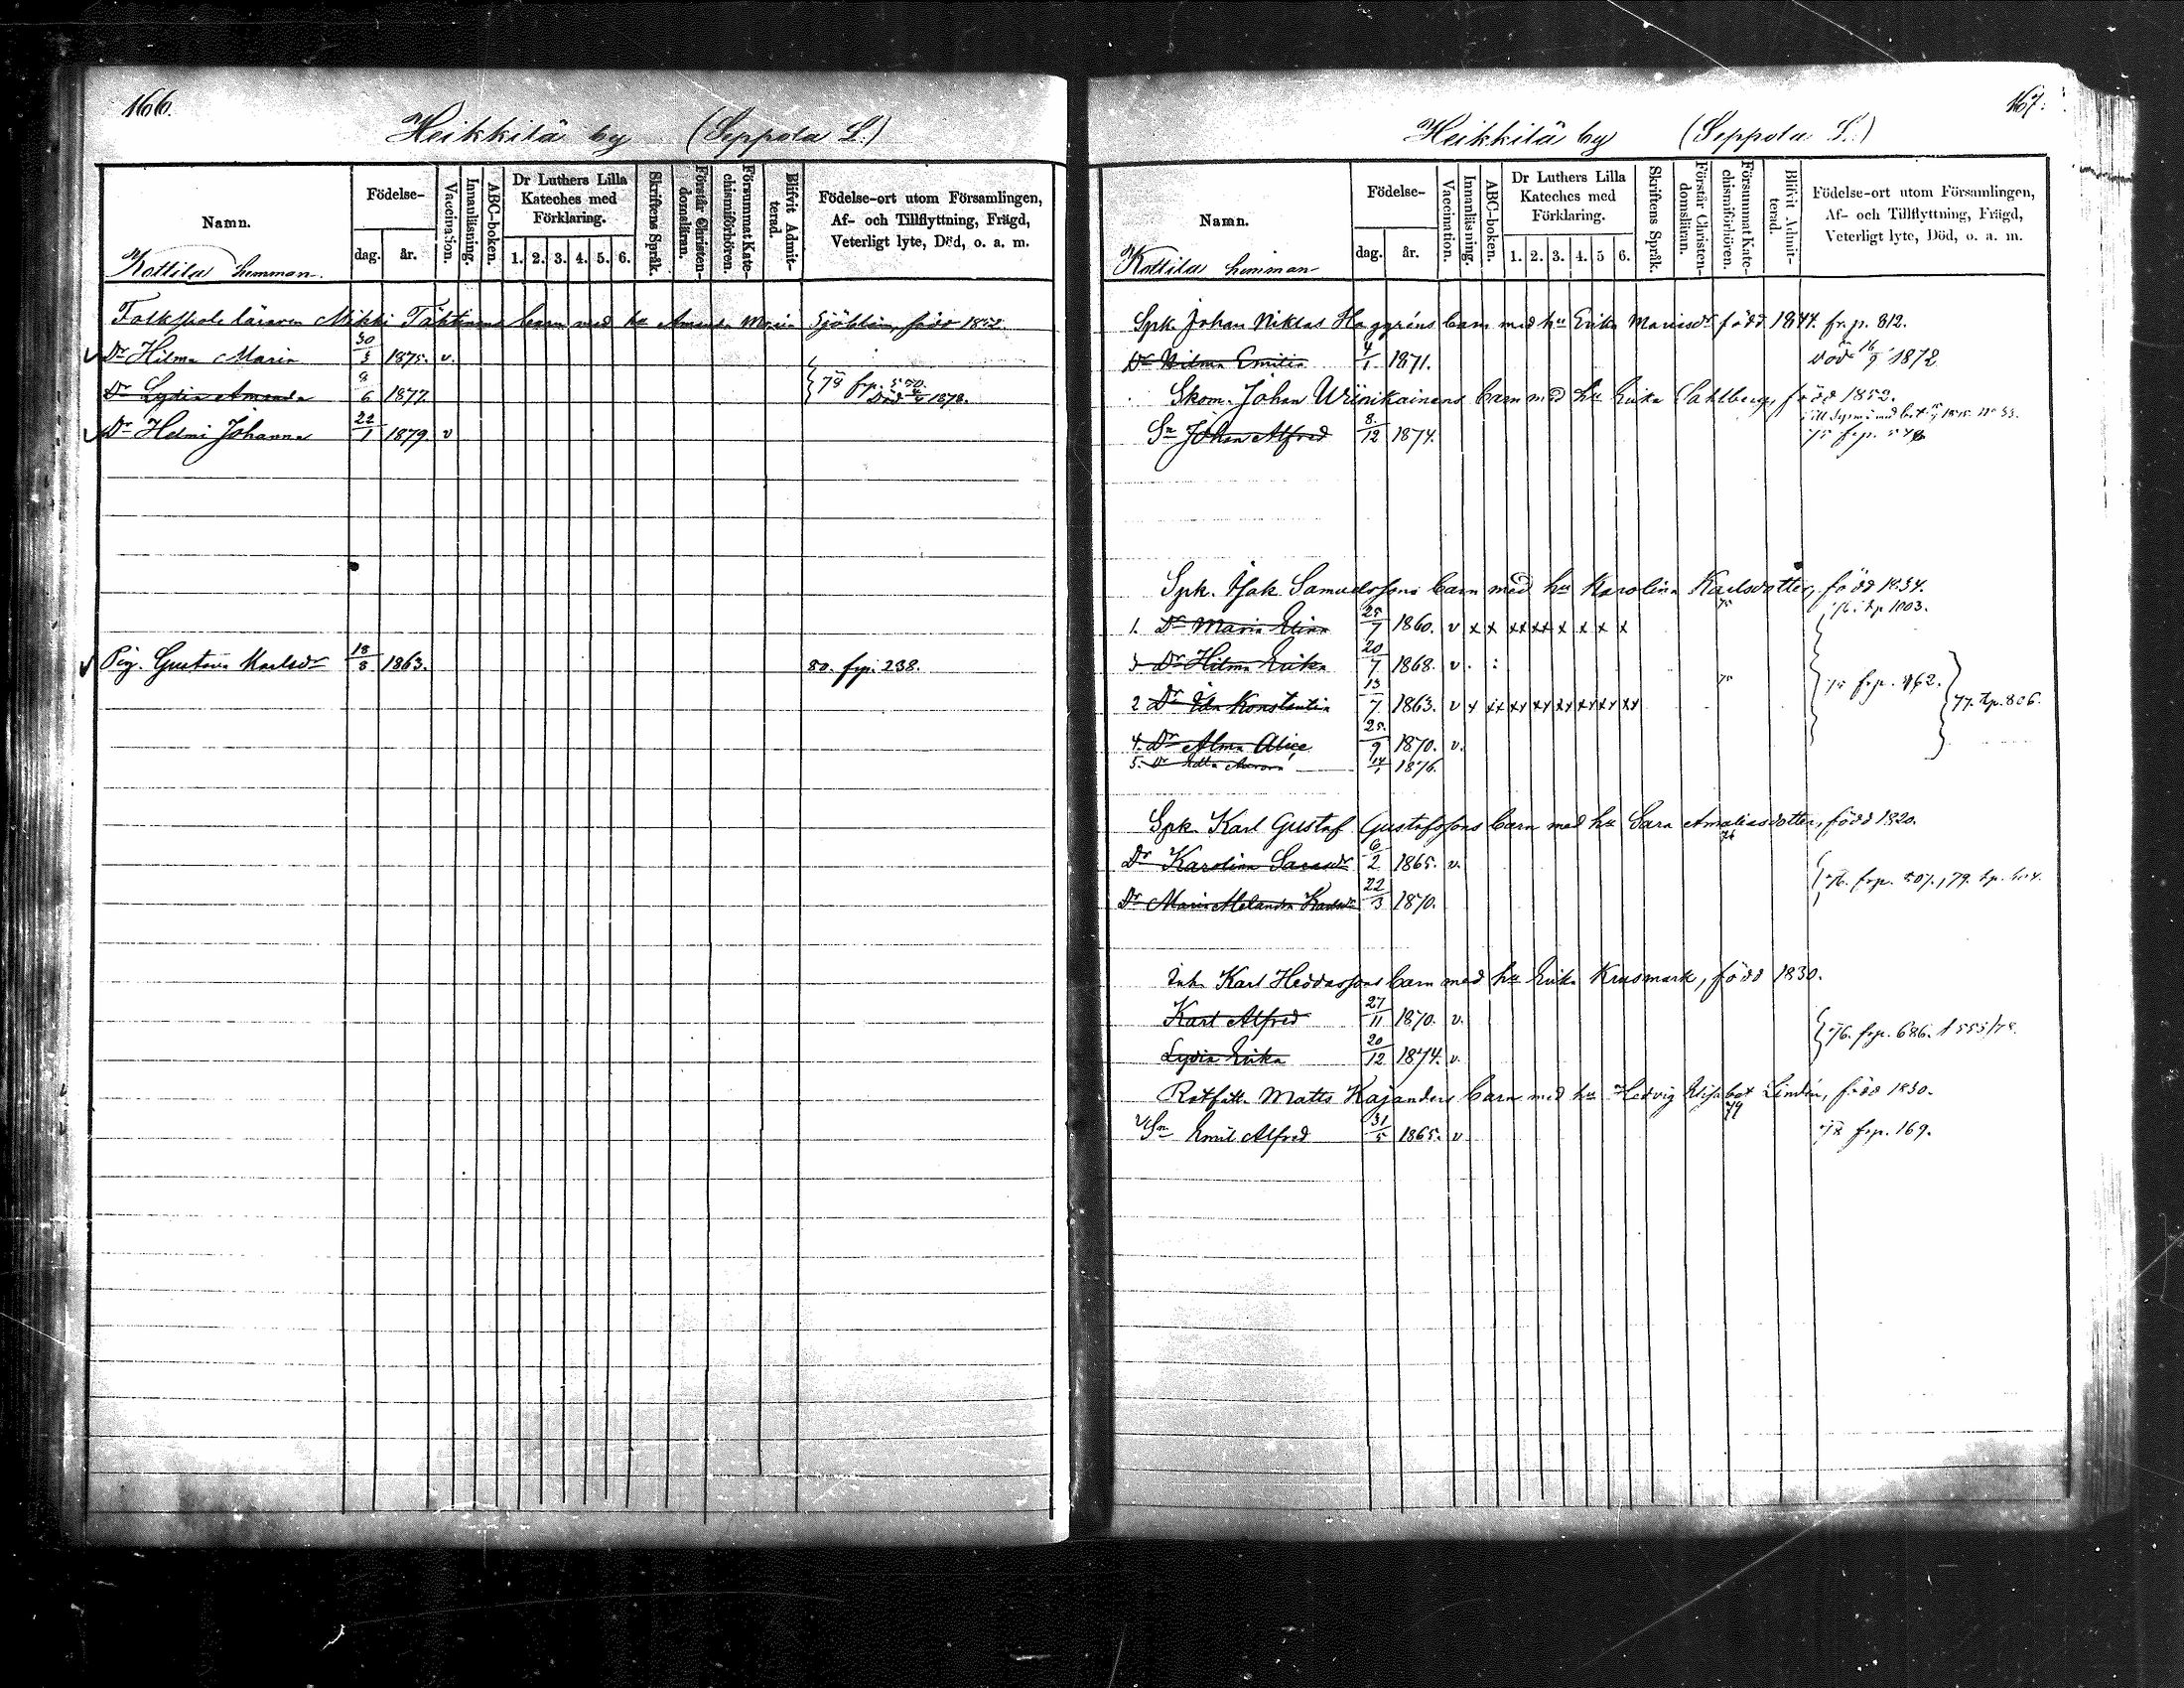 166.
Heikkilä by (Seppola L.)
Namn.
Födelse-
dag. år.
Vaccination.
Innanläsning.
ABC-boken.
Dr Luthers Lilla Kateches med Förklaring.
1. 2. 3. 4. 5. 6.
Skriftens Språk.
Förstår Christendomsläran.
Försummat Katechismiförhören.
Blifvit Admitterad.
Födelse-ort utom Församlingen,
Af- och Tillflyttning, Frägd,
Veterligt lyte, Död, o. a. m.
Kottila hemman.
Folkskole läraren Mikki Tähtinens barn med hu Amanda Maria Sjöblom, född
Dr Hilma Maria 30/3 1875. v.
Dr Lydia Amanda 8/6 1877. 78 frp. 570. Död 1878.
Dr Helmi Johanna 22/1 1879 v
Pig. Gustava Karlsdr 18/8 1863. 80. frp. 238.
167.
Heikkilä by (Seppola L.)
Namn.
Födelse-
dag. år.
Vaccination.
Innanläsning.
ABC-boken.
Dr Luthers Lilla Kateches med Förklaring.
1. 2. 3. 4. 5 6.
Skriftens Språk.
Förstår Christendomsläran.
Försummat Katechismiförhören.
Blifvit Admitterad.
Födelse-ort utom Församlingen,
Af- och Tillflyttning, Frägd,
Veterligt lyte, Död, o. a. m.
Kottila hemman
Spk. Johan Niklas Haggréns barn med hu Erika Mariasdr född 1844. frp. 812.
Dr Wilma Emilia 4/1 1871. död 16/9 1872
Skom. Johan Wiinikainens barn med hu Erika Sahlberg, född 1852.
Sn Johan Alfred 8/12 1874. 75 frp.
Spk. Isak Samuelssons barn med hu Karolina Karlsdotter, född 1834.
1. Dr Maria Elina 25/7 1860. v x x xx xx x x x x 76 tp 1003.
3 Dr Hilma Erika 20/7 1868. v.
2 Dr Ida Konstantia 13/7 1863. v x xx xx xx xx xx xx xx 75 frp. 77. tp. 806.
4. Dr Alma Alice 25/9 1870. v.
5. Dr Aurora 14/1 1876.
Spk. Karl Gustaf Gustafssons barn med hu Sara Amaliasdotter, född 1820.
Dr Karolina Sarasdr 6/2 1865. v.
Dr Maria Melanda Karlsdr 22/3 1870. 76. frp. 507., 79. tp.
Inh. Karl Heddassons barn med hu Erika Krusmark, född 1830.
Karl Alfred 27/11 1870. v.
Lydia Erika 20/12 1874. v. 76. frp. 686. 555/78.
Rotfatt. Matts Kajanders barn med hu Hedvig Elisabet Lindén, född 1830.
Sn Emil Alfred 31/5 1865. v 79 frp. 169.